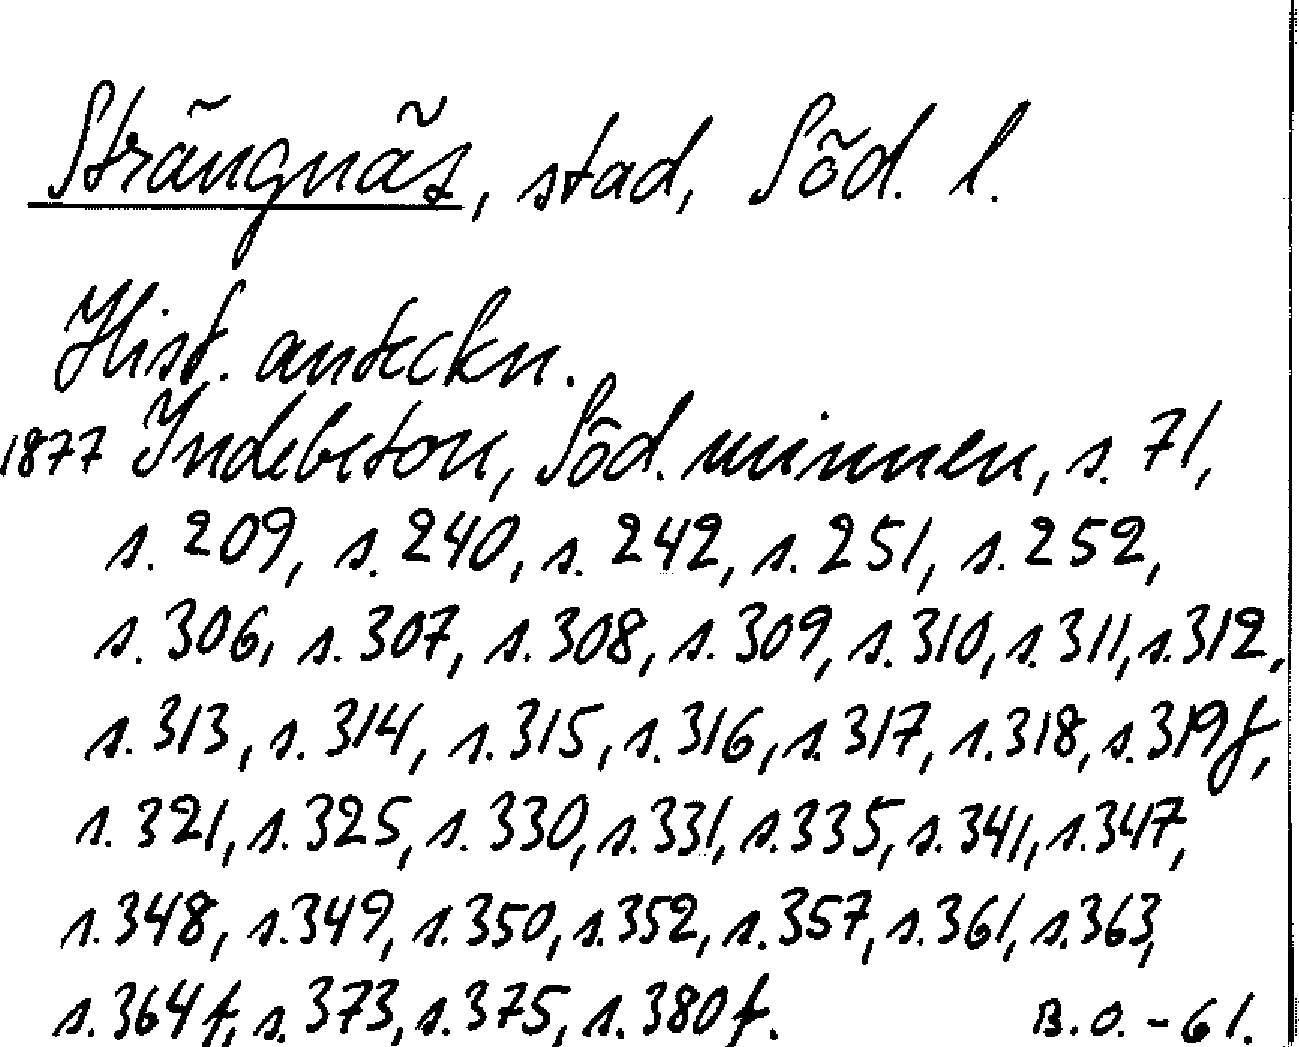 Strängnäs, stad, Söd. l.
Hist. anteckn.
1877 Indebetou, Söd. minnen, s. 71,
s. 209, s. 240, s. 242, s. 251, s. 252,
s. 306, s. 307, s. 308, s. 309, s. 310, s. 311, s. 312,
s. 313, s. 314, s. 315, s. 316, s. 317, s. 318, s. 319f,
s. 321, s. 325, s. 330, s. 331, s. 335, s. 341, s. 347,
s. 348, s. 349, s. 350, s. 352, s. 357, s. 361, s. 363,
s. 364f, s. 373, s. 375, s. 380f. B.O. - 61.